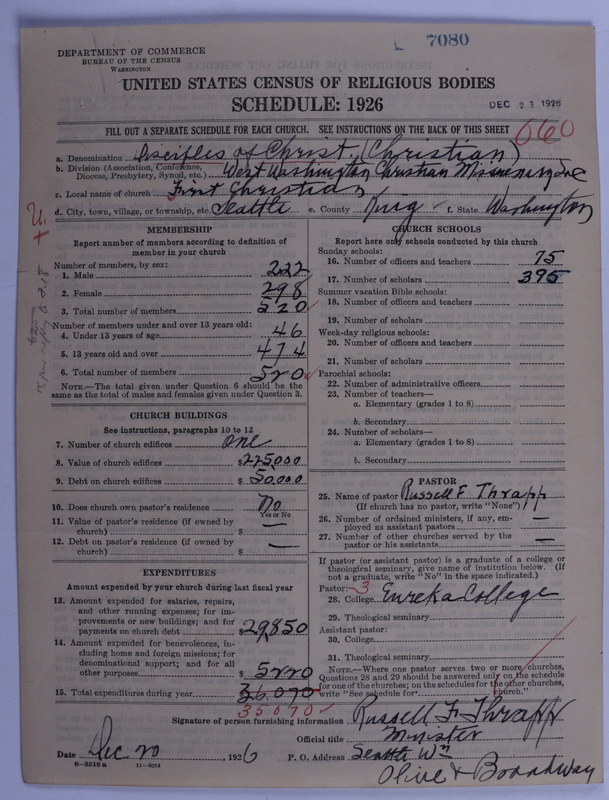 7080
DEPARTMENT OF COMMERCE
BUREAU OF THE CENSUS
WASHINGTON
UNITED STATES CENSUS OF RELIGIOUS BODIES
SCHEDULE: 1926
DEC 23 1926
FILL OUT A SEPARATE SCHEDULE FOR EACH CHURCH. SEE INSTRUCTIONS ON THE BACK OF THIS SHEET
660
a. Denomination Disciples of Christ (Christian)
b. Division (Association, Conference, Diocese, Presbytery, Synod, etc.) West Washington Christian Missionary Soc
c. Local name of church First Christian
d. City, town, village, or township, etc. Seattle e. County King f. State Washington
MEMBERSHIP
Report number of members according to definition of member in your church
Number of members by sex:
1. Male 222
2. Female 298
3. Total number of members 520
Number of members under and over 13 years old:
4. Under 13 years of age 46
5. 13 years old and over 474
6. Total number of members 520
NOTE.—The total given under Question 6 should be the same as the total of males and females given under Question 3.
CHURCH BUILDINGS
See instructions, paragraphs 10 to 12
7. Number of church edifices one
8. Value of church edifices $225000
9. Debt on church edifices $50,000
10. Does church own pastor's residence No
Yes or No
11. Value of pastor's residence (if owned by church) $ —
12. Debt on pastor's residence (if owned by church) $ —
EXPENDITURES
Amount expended by your church during last fiscal year
13. Amount expended for salaries, repairs, and other running expenses; for improvements or new buildings; and for payments on church debt $29,850
14. Amount expended for benevolences, including home and foreign missions; for denominational support; and for all other purposes $5220
15. Total expenditures during year 36070
35070
CHURCH SCHOOLS
Report here only schools conducted by this church
Sunday schools:
16. Number of officers and teachers 75
17. Number of scholars 395
Summer vacation Bible schools:
18. Number of officers and teachers
19. Number of scholars
Week-day religious schools:
20. Number of officers and teachers
21. Number of scholars
Parochial schools:
22. Number of administrative officers
23. Number of teachers—
a. Elementary (grades 1 to 8)
b. Secondary
24. Number of scholars—
a. Elementary (grades 1 to 8)
b. Secondary
PASTOR
25. Name of pastor Russell F Thrapp
(If church has no pastor, write "None")
26. Number of ordained ministers, if any, employed as assistant pastors —
27. Number of other churches served by the pastor or his assistants —
If pastor (or assistant pastor) is a graduate of a college or theological seminary, give name of institution below. (If not a graduate, write "No" in the space indicated.)
Pastor: 3
28. College Eureka College
29. Theological seminary
Assistant pastor:
30. College
31. Theological seminary
NOTE.—Where one pastor serves two or more churches, Questions 28 and 29 should be answered only on the schedule for one of the churches; on the schedules for the other churches, write "See schedule for church."
Signature of person furnishing information Russell F. Thrapp
Official title Minister
Date Dec 20 1926 P. O. Address Seattle Wn
8—5518a 11—9024
Olive & Broadway